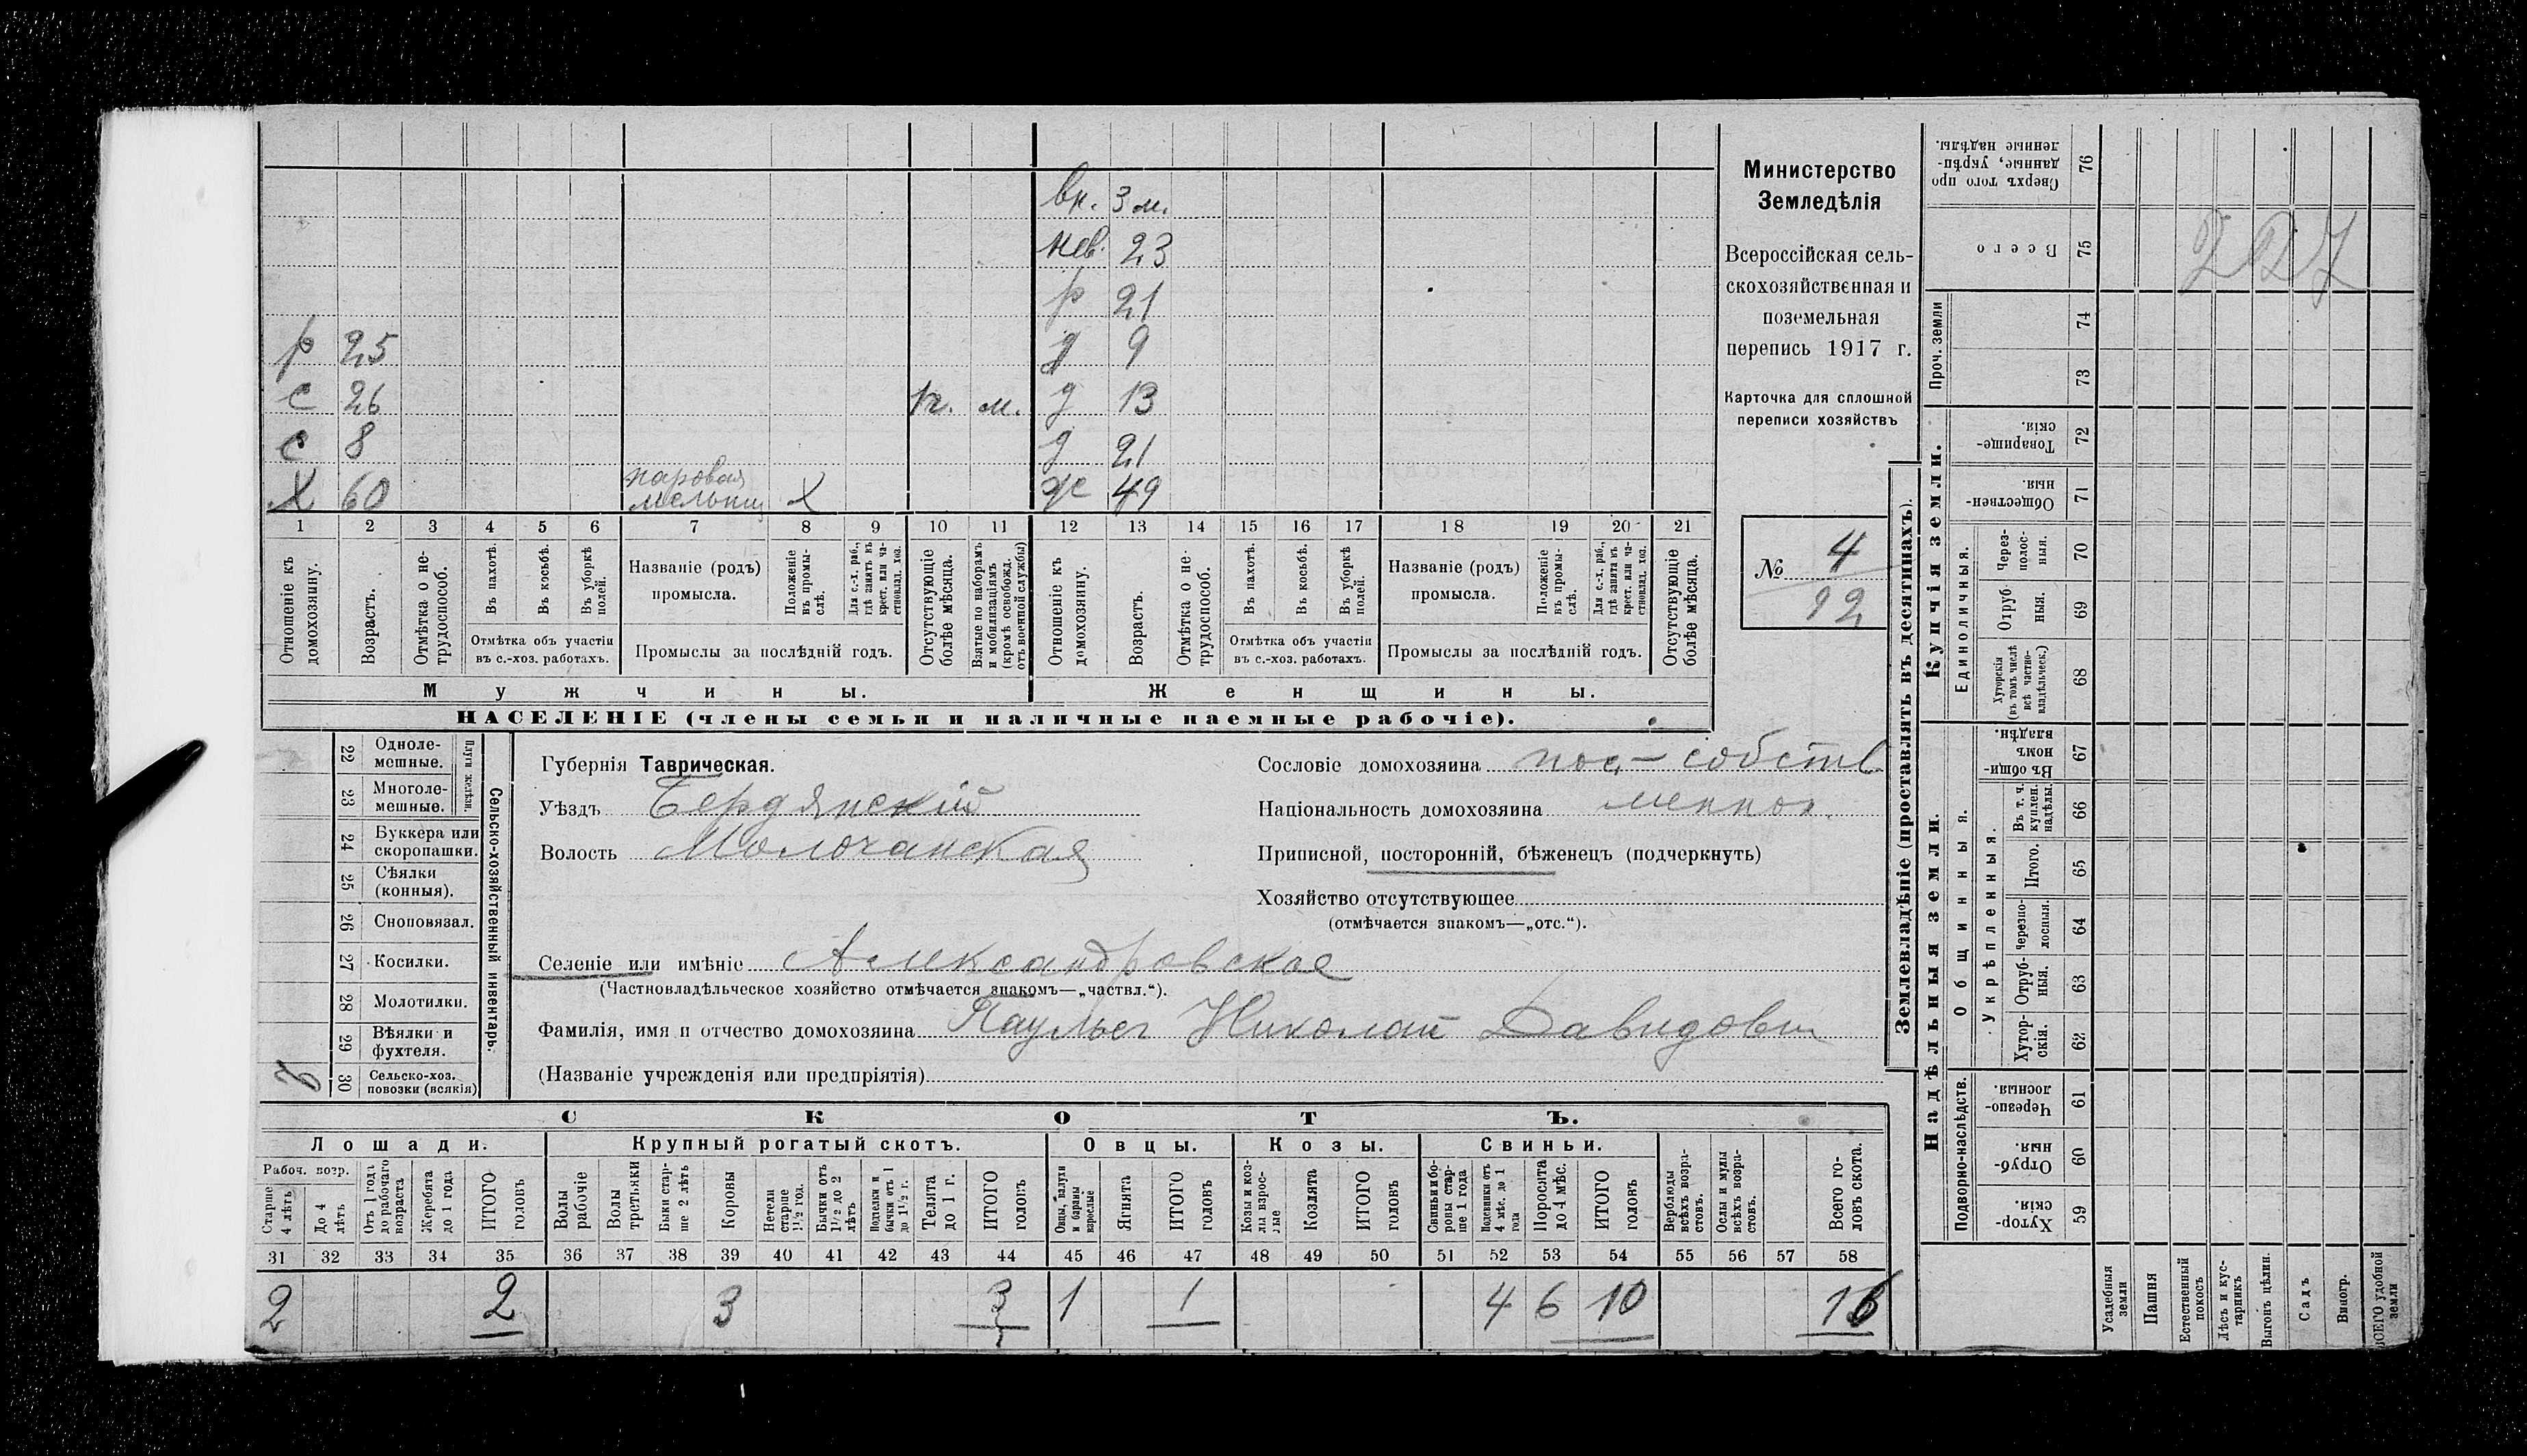 вн. 3 м.
нев. 23
р 21
р 25 д 9
с 26 п. м. д 13
с 8 д 21
х 60 паровая мельниц х ж 49
1 2 3 4 5 6 7 8 9 10 11 12 13 14 15 16 17 18 19 20 21
Отношеніе къ домохозяину.
Возрастъ.
Отмѣтка о нетрудоспособ.
Въ пахотѣ.
Въ косьбѣ.
Въ уборкѣ полей.
Отмѣтка объ участіи
въ с.-хоз. работахъ.
Названіе (родъ)
промысла.
Положеніе въ промыслѣ.
Для с.-х. раб., гдѣ занятъ въ крест. или частновлад. хоз.
Промыслы за послѣдній годъ.
Отсутствующіе болѣе мѣсяца.
Взятые по наборамъ и мобилизаціямъ (кромѣ освобожд. отъ военной службы)
Отношеніе къ домохозяину.
Возрастъ.
Отмѣтка о нетрудоспособ.
Въ пахотѣ.
Въ косьбѣ.
Въ уборкѣ полей.
Отмѣтка объ участіи
въ с.-хоз. работахъ.
Названіе (родъ)
промысла.
Положеніе въ промыслѣ.
Для с.-х. раб., гдѣ занята въ крест. или частновлад. хоз.
Промыслы за послѣдній годъ.
Отсутствующіе болѣе мѣсяца.
Мужчины.
Женщины.
НАСЕЛЕНІЕ (члены семьи и наличные наемные рабочіе).
Министерство
Земледѣлія
Всероссійская сель-
скохозяйственная и
поземельная
перепись 1917 г.
Карточка для сплошной
переписи хозяйствъ
№ 4
92
22 Одноле-
мешные.
23 Многоле-
мешные.
Плуги желѣзн.
24 Буккера или
скоропашки.
25 Сѣялки
(конныя).
26 Сноповязал.
27 Косилки.
28 Молотилки.
29 Вѣялки и
фухтеля.
30 Сельско-хоз.
повозки (всякія)
Сельско-хозяйственный инвентарь.
Губернія Таврическая.
Уѣздъ Бердянскій
Волость Молочанская
Сословіе домохозяина пос.-собств
Національность домохозяина меннон.
Приписной, посторонній, бѣженецъ (подчеркнуть)
Хозяйство отсутствующее
(отмѣчается знакомъ—„отс.“).
Селеніе или имѣніе Александровское
(Частновладѣльческое хозяйство отмѣчается знакомъ—„частвл.“).
Фамилія, имя и отчество домохозяина Паульс Николай Давидович
(Названіе учрежденія или предпріятія)
СКОТЪ.
Лошади. Крупный рогатый скотъ. Овцы. Козы. Свиньи.
Рабоч. возр.
Старше 4 лѣтъ
До 4 лѣтъ
Отъ 1 года до рабочаго возраста
Жеребята до 1 года
ИТОГО головъ
Волы рабочіе
Волы третьяки
Быки старше 2 лѣтъ
Коровы
Нетели старше 1½ год.
Бычки отъ 1½ до 2 лѣтъ
Подтелки и бычки отъ 1 до 1½ г.
Телята до 1 г.
ИТОГО головъ
Овцы, валухи и бараны взрослые
Ягнята
ИТОГО головъ
Козы и козлы взрослые
Козлята
ИТОГО головъ
Свиньи и боровы старше 1 года
Подсвинки отъ 4 мѣс. до 1 года
Поросята до 4 мѣс.
ИТОГО головъ
Верблюды всѣхъ возрастовъ.
Ослы и мулы всѣхъ возрастовъ.
Всего головъ скота.
31 32 33 34 35 36 37 38 39 40 41 42 43 44 45 46 47 48 49 50 51 52 53 54 55 56 57 58
2 2 3 3 1 1 4 6 10 16
Землевладѣніе (проставлять въ десятинахъ).
Надѣльныя земли.
Купчія земли.
Проч. земли
Подворно-наслѣдств.
Общинныя.
Укрѣпленныя.
Единоличныя.
Сверхъ того проданные, укрѣпленные надѣлы. 76
Всего 75
74
73
Товарищескія. 72
Общественныя. 71
Черезполосныя. 70
Отрубныя. 69
Хуторскія (въ томъ числѣ всѣ частновладѣльческ.) 68
Въ общинномъ владѣн. 67
Въ т. ч. куплен. надѣлы. 66
Итого. 65
Черезполосныя. 64
Отрубныя. 63
Хуторскія. 62
Черезполосныя. 61
Отрубныя. 60
Хуторскія. 59
Усадебныя земли
Пашня
Естественный покосъ
Лѣсъ и кустарникъ
Выгонъ цѣлин.
Садъ
Виногр.
ВСЕГО удобной земли